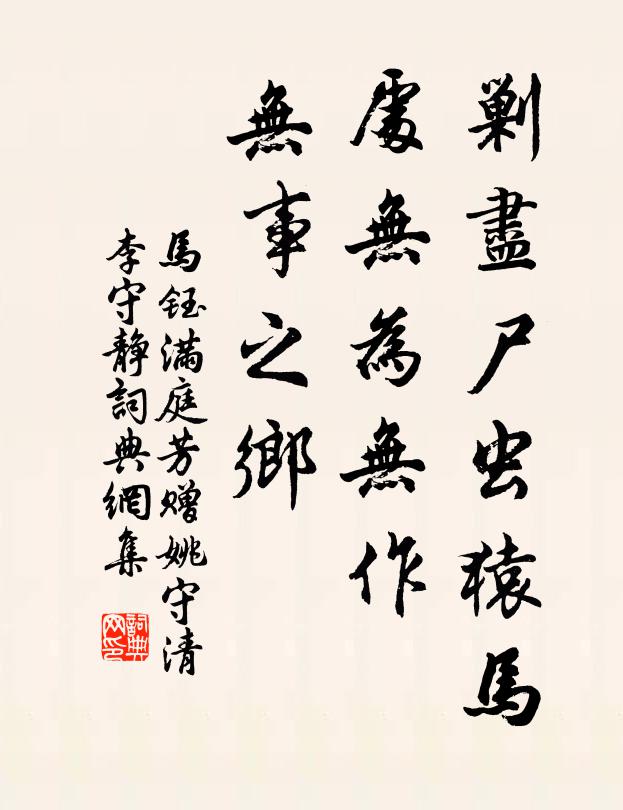 剿盡尸虫猿馬
處無為無作
無事之鄉
馬鈺满庭芳赠姚守清
李守静詞典網集
詞典网印